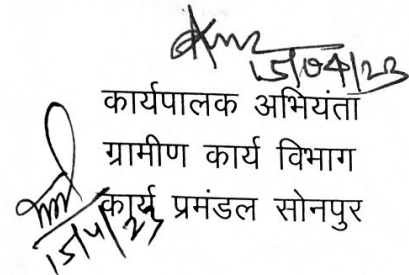 15/04/23
कार्यपालक अभियंता
ग्रामीण कार्य विभाग
कार्य प्रमंडल सोनपुर
15/4/23